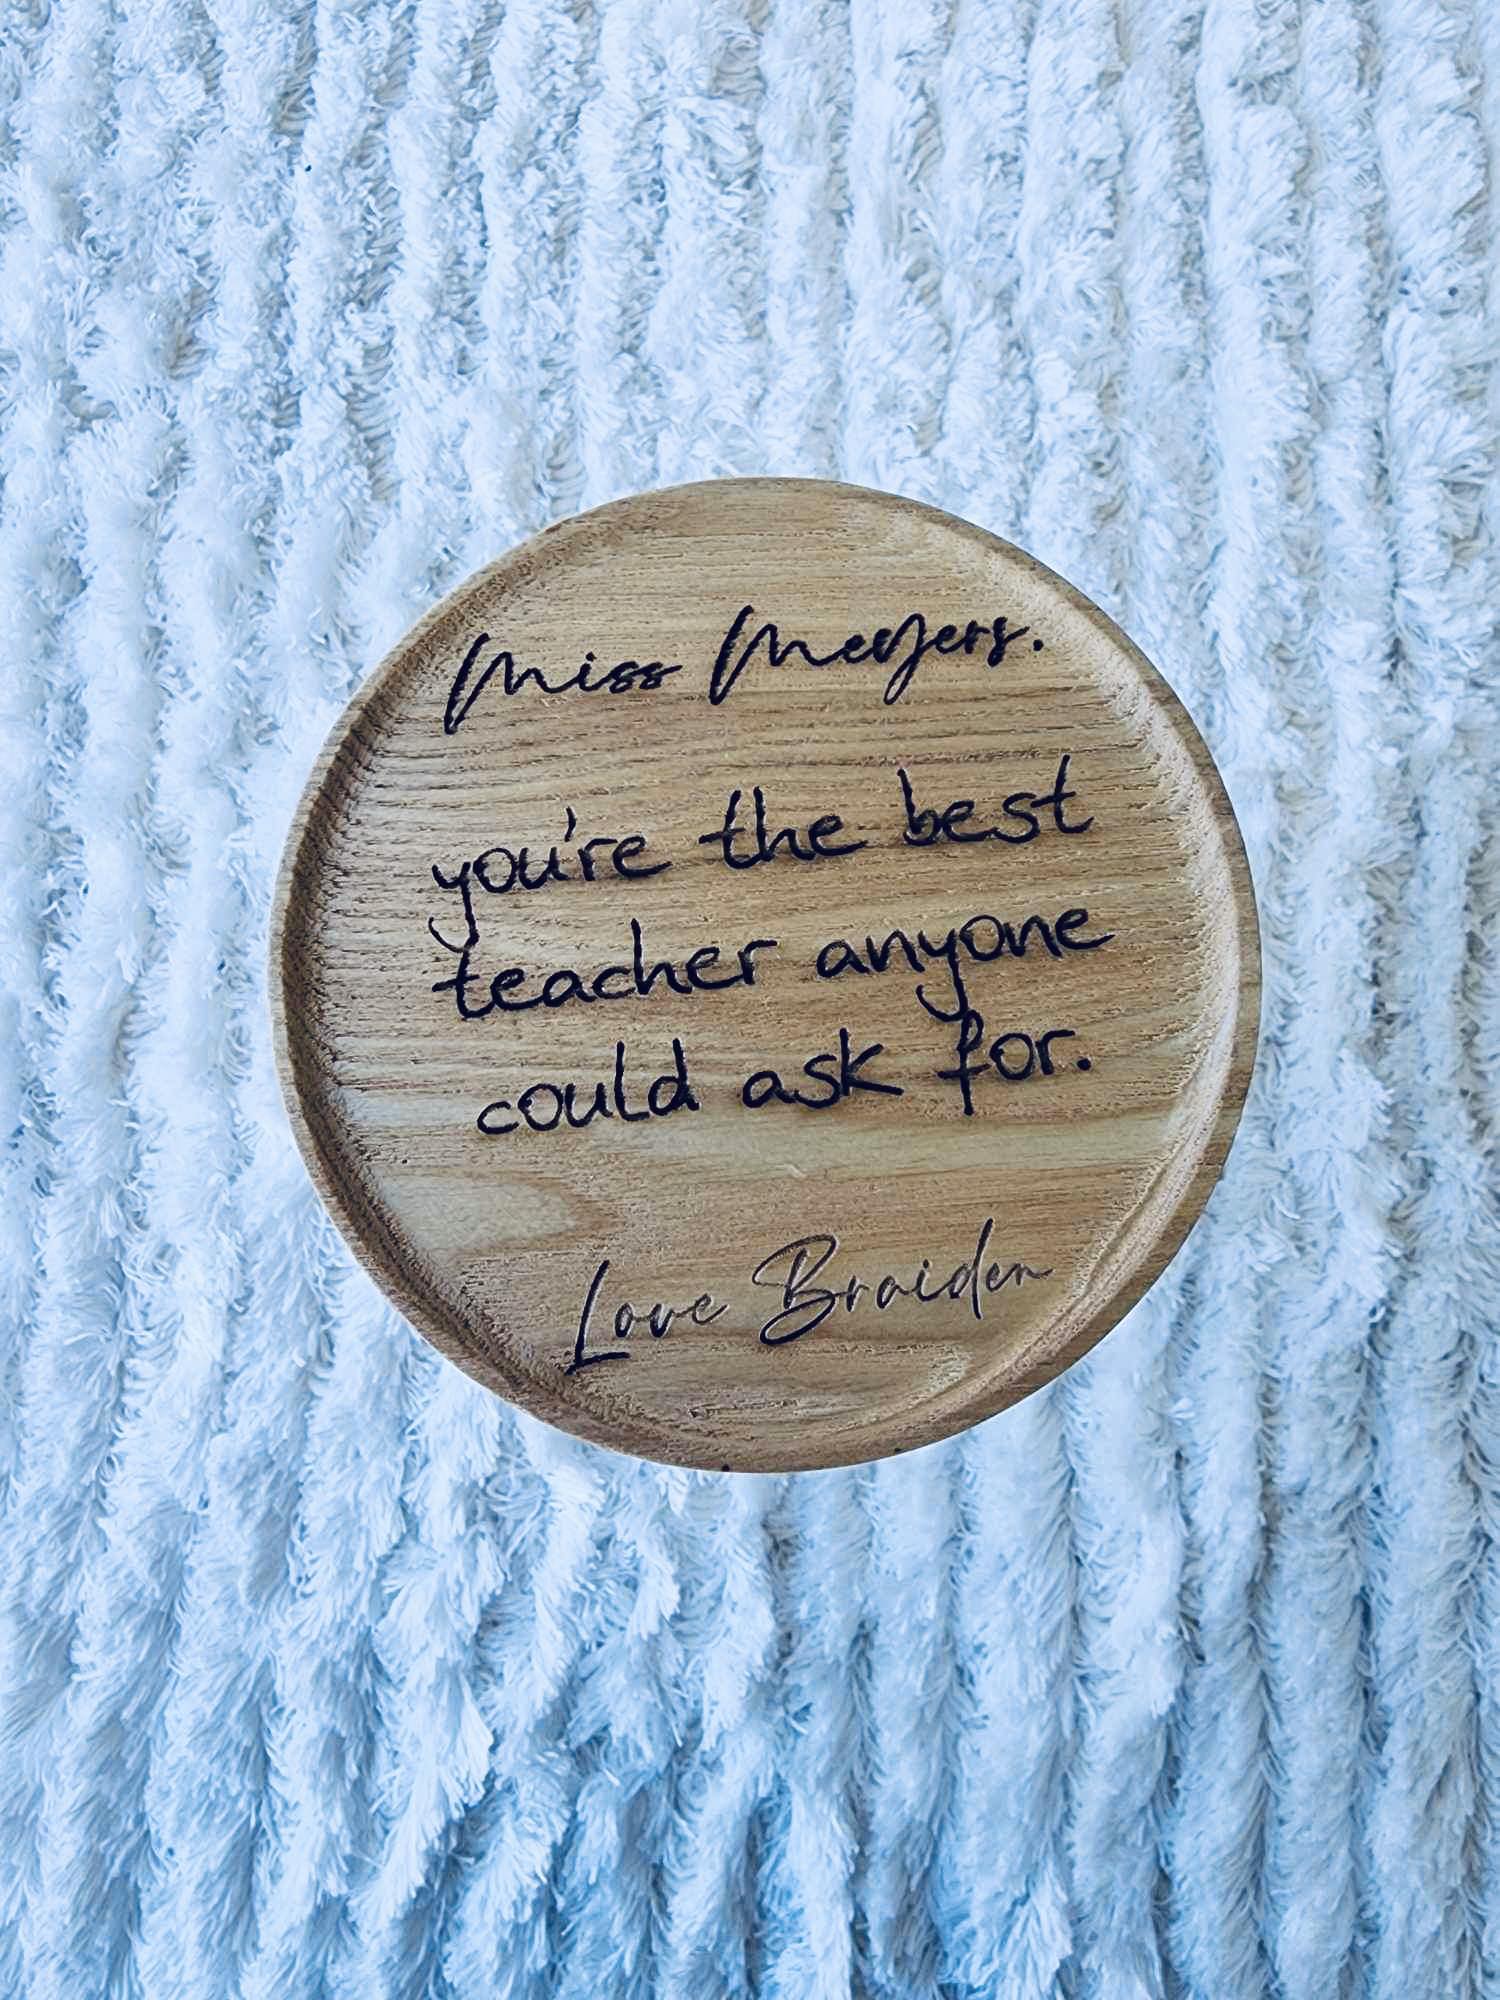 Miss Meyers.
you're the best
teacher anyone
could ask for.
Love Braiden